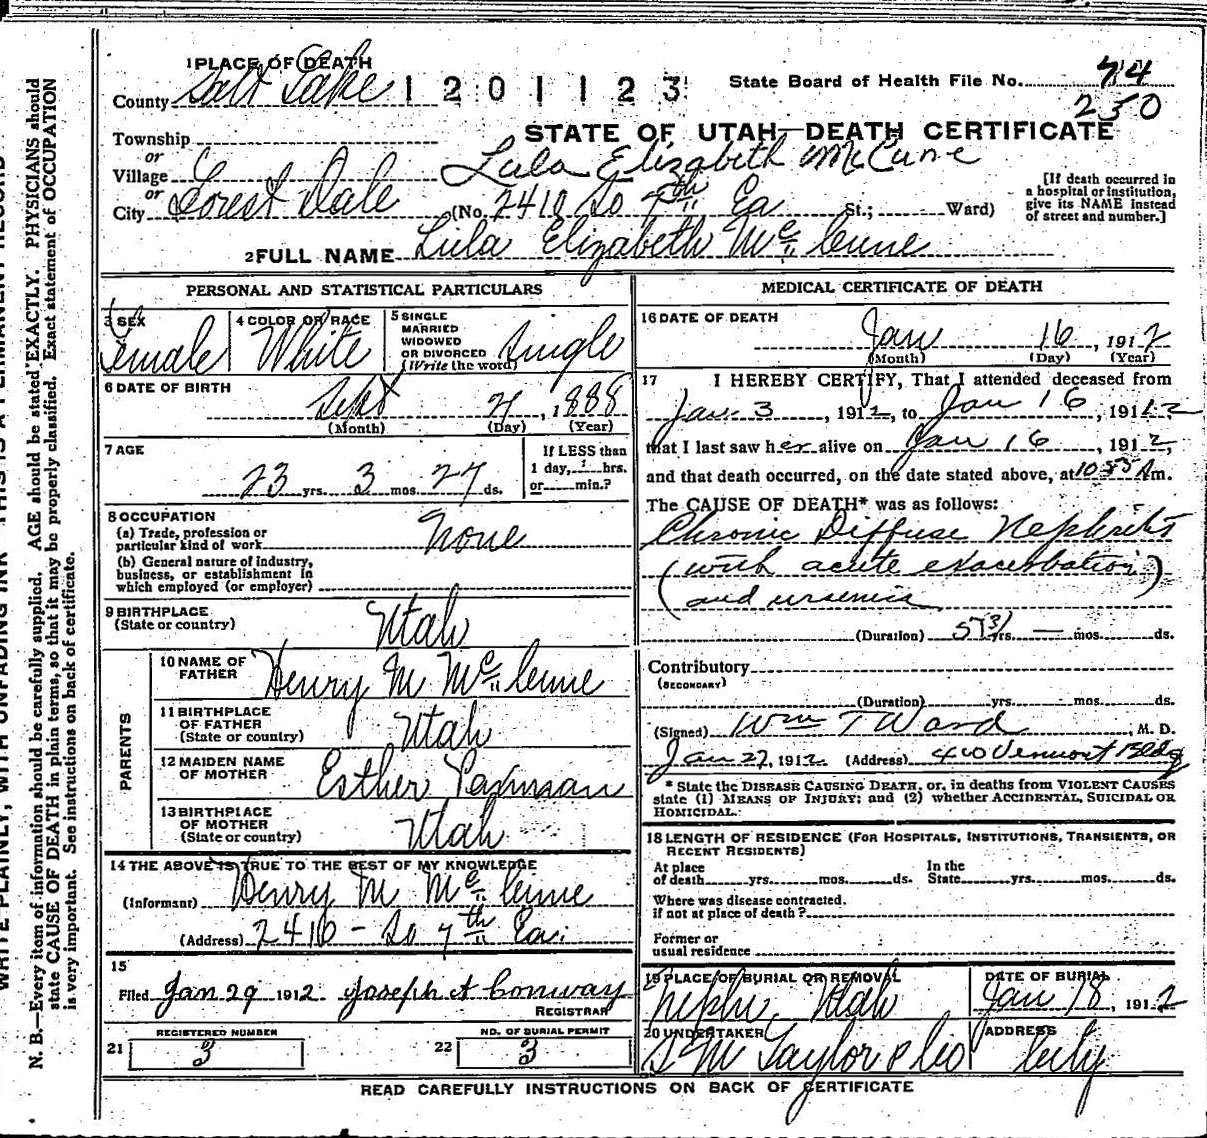 1 PLACE OF DEATH
County Salt Lake 1201123 State Board of Health File No. 74
250
Township
or
STATE OF UTAH—DEATH CERTIFICATE
Village Lula Elizabeth McCune
or
City Forest Dale (No. 2410 So 7th Ea St.; Ward)
[If death occurred in a hospital or institution, give its NAME instead of street and number.]
2 FULL NAME Lula Elizabeth McCune
PERSONAL AND STATISTICAL PARTICULARS
3 SEX Female
4 COLOR OR RACE White
5 SINGLE MARRIED WIDOWED OR DIVORCED (Write the word) Single
6 DATE OF BIRTH
Sept , 1888
(Month) (Day) (Year)
7 AGE
23 yrs. 3 mos. 27 ds.
If LESS than
1 day, hrs.
or min.?
8 OCCUPATION
(a) Trade, profession or
particular kind of work None
(b) General nature of industry,
business, or establishment in
which employed (or employer)
9 BIRTHPLACE
(State or country) Utah
PARENTS
10 NAME OF
FATHER Henry M McCune
11 BIRTHPLACE
OF FATHER
(State or country) Utah
12 MAIDEN NAME
OF MOTHER Esther Paxman
13 BIRTHPLACE
OF MOTHER
(State or country) Utah
14 THE ABOVE IS TRUE TO THE BEST OF MY KNOWLEDGE
(Informant) Henry M McCune
(Address) 2410 - So 7th Ea.
15
Filed Jan 29 1912. Joseph A Conway
REGISTRAR
REGISTERED NUMBER NO. OF BURIAL PERMIT
21 3 22 3
MEDICAL CERTIFICATE OF DEATH
16 DATE OF DEATH
Jan 16, 1912
(Month) (Day) (Year)
17 I HEREBY CERTIFY, That I attended deceased from
Jan. 3, 1912, to Jan 16, 1912
that I last saw her alive on Jan 16, 1912,
and that death occurred, on the date stated above, at 10 55 Am.
The CAUSE OF DEATH* was as follows:
Chronic Diffuse Nephritis
(with acute exacerbation)
(and uraemia
(Duration) yrs. — mos. ds.
Contributory
(SECONDARY)
(Duration) yrs. mos. ds.
(Signed) Wm T Ward, M. D.
Jan 27, 1912 (Address) 400 Vermont Bldg
* State the DISEASE CAUSING DEATH, or, in deaths from VIOLENT CAUSES
state (1) MEANS OF INJURY; and (2) whether ACCIDENTAL, SUICIDAL OR
HOMICIDAL.
18 LENGTH OF RESIDENCE (FOR HOSPITALS, INSTITUTIONS, TRANSIENTS, OR
RECENT RESIDENTS)
At place In the
of death yrs. mos. ds. State yrs. mos. ds.
Where was disease contracted.
if not at place of death?
Former or
usual residence
19 PLACE OF BURIAL OR REMOVAL DATE OF BURIAL
Nephi, Utah Jan 18, 1912
20 UNDERTAKER ADDRESS
S M Taylor & Co City
READ CAREFULLY INSTRUCTIONS ON BACK OF CERTIFICATE
WRITE PLAINLY, WITH UNFADING INK—THIS IS A PERMANENT RECORD
N. B.—Every item of information should be carefully supplied. AGE should be stated EXACTLY. PHYSICIANS should
state CAUSE OF DEATH in plain terms, so that it may be properly classified. Exact statement of OCCUPATION
is very important. See instructions on back of certificate.